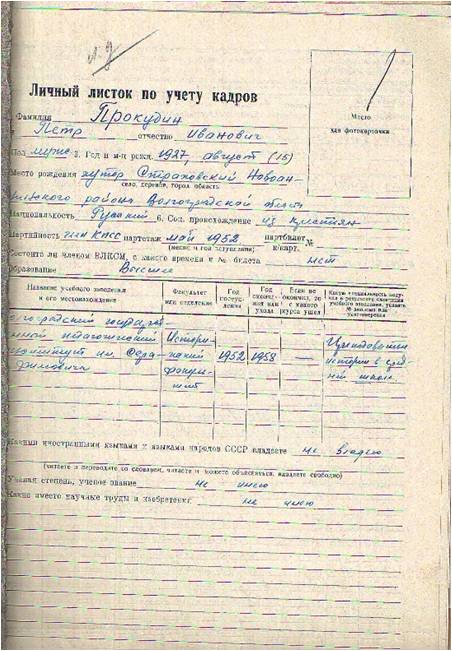 л. д
Личный листок по учету кадров
Фамилия Прокудин
Петр отчество Иванович
Пол муж 3. Год и м-ц рожд. 1927, август (15)
Место рождения хутор Страховский Новоан-
село, деревня, город область
нинского района Волгоградской области
Национальность Русский 6. Соц. происхождение из крестьян
Партийность член КПСС партстаж май 1952 партбилет №
(месяц и год вступления) к/карт.
Состоите ли членом ВЛКСМ, с какого времени и № билета нет
Образование Высшее
Место
для фотокарточки
Название учебного заведения и его местонахождение
Факультет или отделение
Год поступления
Год окончания или ухода
Если не окончил, то с какого курса ушел
Какую специальность получил в результате окончания учебного заведения, указать № диплома или удостоверения
педагогический
институт им. Сера-
фимовича
Истори-
ческий
1952 1958 —
истории в сред-
ней школе.
Какими иностранными языками и языками народов СССР владеете не владею
(читаете и переводите со словарем, читаете и можете объясняться, владеете свободно)
Ученая степень, ученое звание не имею
Какие имеете научные труды и изобретения не имею